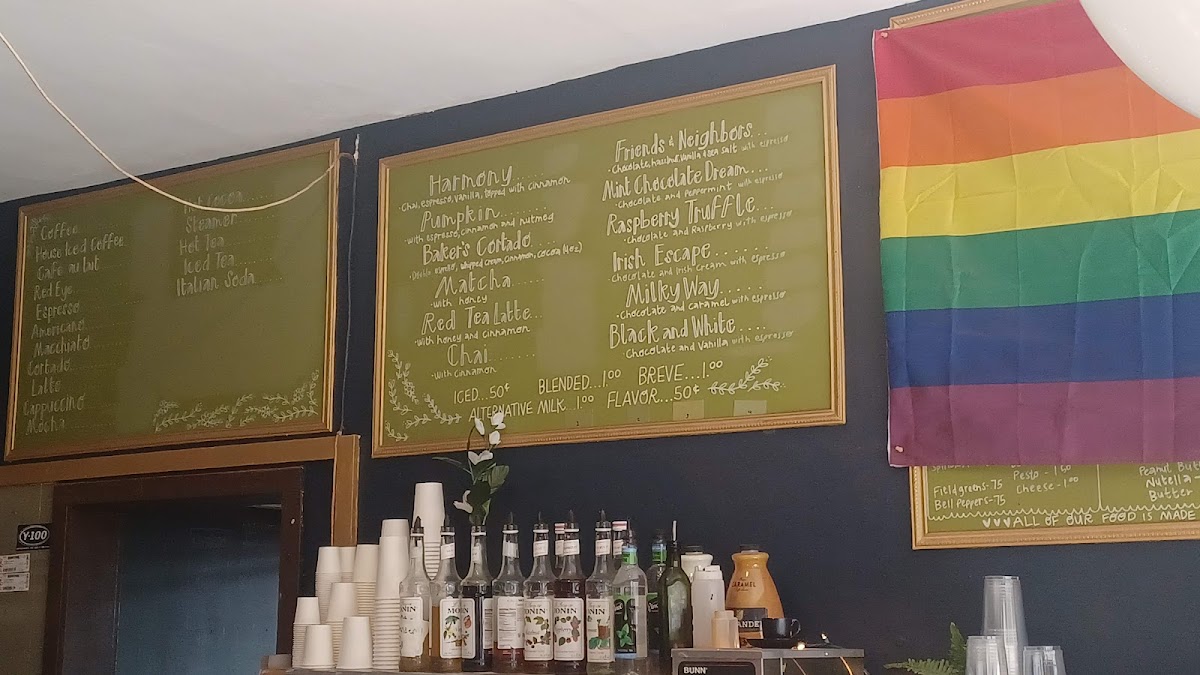 Coffee
House Iced Coffee
Café au lait
Red Eye
Espresso
Americano
Macchiato
Cortado
Latte
Cappuccino
Mocha
Steamer
Hot Tea
Iced Tea
Italian Soda
Harmony......
-Chai, espresso, vanilla, topped with cinnamon
Pumpkin.........
-with espresso, cinnamon and nutmeg
Baker's Cortado...
espresso, whipped cream, cinnamon, cocoa (4oz)
Matcha.......
-with honey
Red Tea Latte...
-with honey and cinnamon
Chai.........
-with cinnamon
Friends & Neighbors...
-Chocolate, hazelnut, vanilla & sea salt with espresso
Mint Chocolate Dream....
-Chocolate and peppermint with espresso
Raspberry Truffle....
-Chocolate and Raspberry with espresso
Irish Escape......
-Chocolate and Irish cream with espresso
Milky Way......
-Chocolate and caramel with espresso
Black and White.....
-Chocolate and Vanilla with espresso
ICED...50¢ BLENDED...1.00 BREVE...1.00
ALTERNATIVE MILK...1.00 FLAVOR...50¢
Field greens-.75
Bell Peppers-.75
Pesto-1.50
Cheese-1.00
Peanut But
Nutella-
Butter
ALL OF OUR FOOD IS MADE
Y-100
MONIN
CARAMEL
BUNN